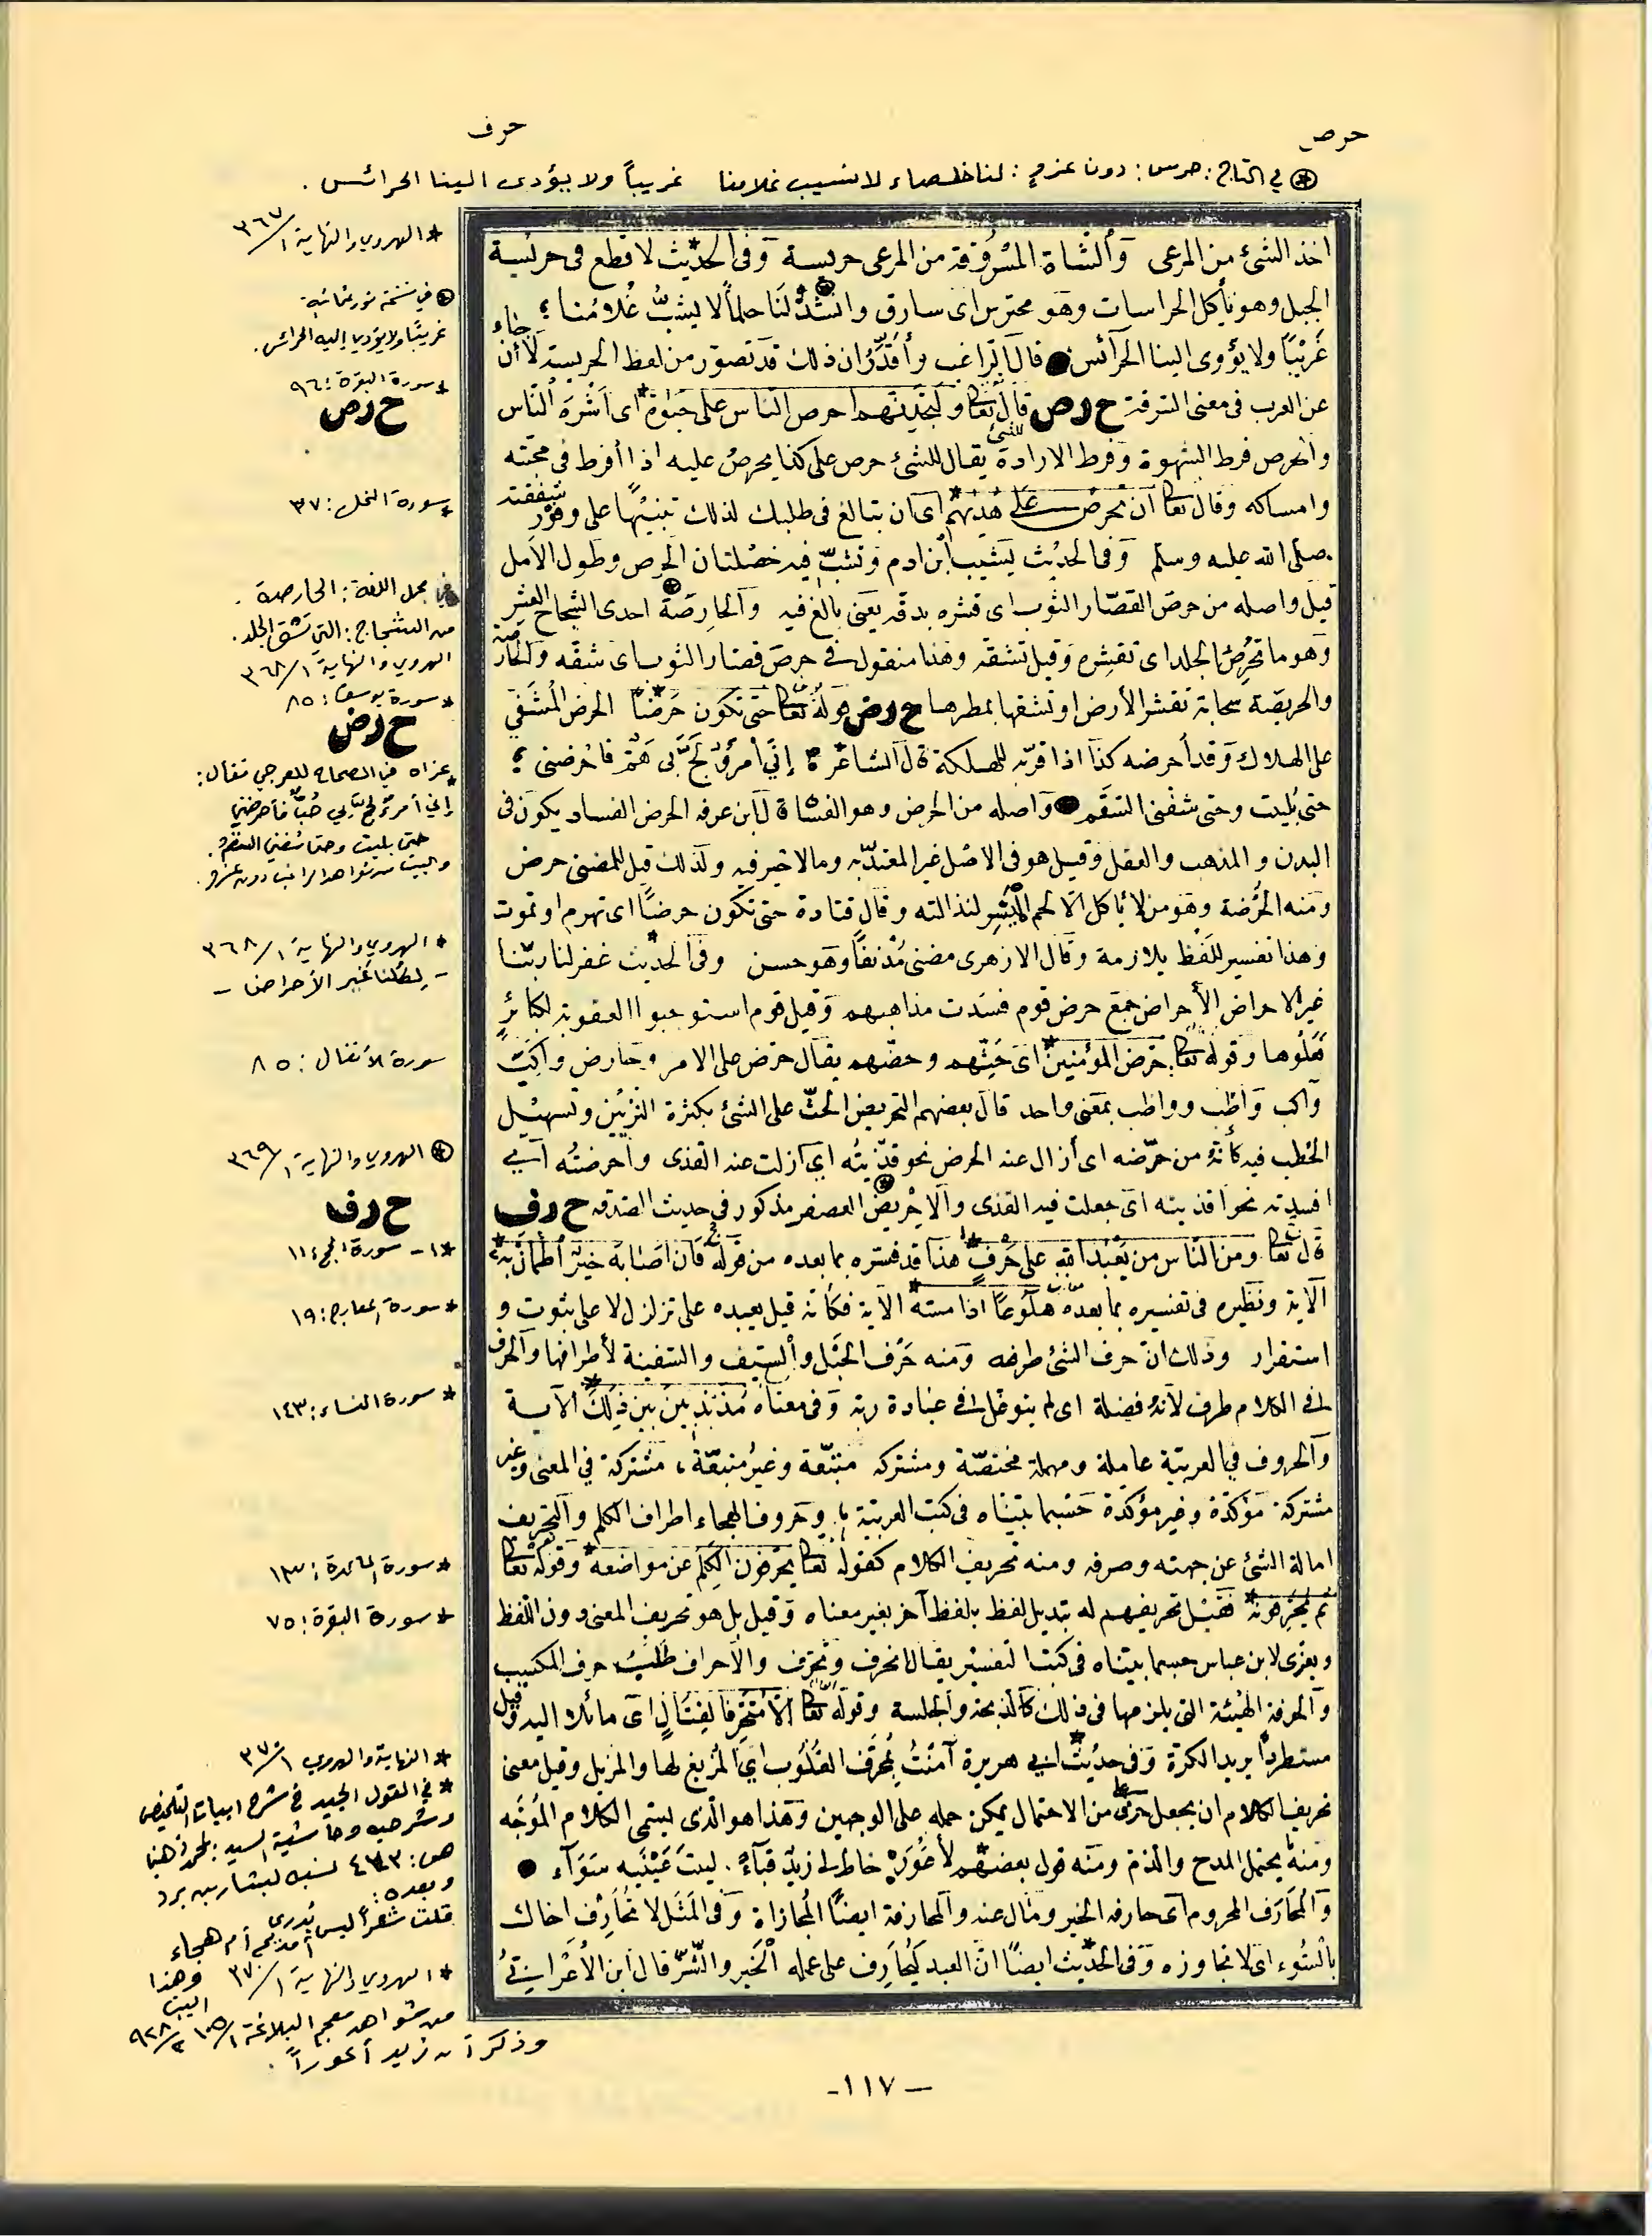 حرص
حرف
في التاج: حرس: دون عزو: لنا خلصاء لا يشيب غلامنا غريباً ولا يؤدى الينا الحرائس.
اخذ الشئ من المرعى وألشاة المسروقة من المرعى حريسة وفى الحديث لا قطع فى حريسة
الجبل وهو يأكل الحراسات وهو محترس اى سارق وانشد لنا حلماً لا يشب غلامنا ؛
غريبًا ولا يؤوى الينا الحرائس قال الراغب وأقدر ان ذلك قد تصور من لفظ الحريسة لأن جاء
عن العرب فى معنى السرقة ح ر ص قال تعا ولتجدنهم احرص الناس على حيوة اى اشره الناس
والحرص فرط الشهوة وفرط الارادة للشئ يقال للشئ حرص على كذا يحرص عليه اذا أفرط فى محبته
وامساكه وقال تعا ان تحرص على هديهم اى ان تبالغ فى طلبك لذلك تنبيهًا على وفور شفقته
صلى الله عليه وسلم وفى الحديث يشيب ابن ادم وتشب فيه خصلتان الحرص وطول الامل
قيل واصله من حرص القصار الثوب اى قشره بدقه يعنى بالغ فيه والحارصة احدى الشجاح العشر
وهو ما تحرص الجلد اى تقشره وقيل تشقه وهذا منقول فى حرص قصار الثوب اى شقه والحارصة
والحريصة سحابة تقشر الأرض او تشقها بمطرها ح ر ض قوله تعا حتى تكون حرضًا الحرض المشفي
على الهلاك وقد أحرضه كذا اذا قربه للهلكة قال الشاعر إني امرؤ لج بى هم فاحرضنى ؛
حتى بليت وحتى شفنى السقم واصله من الحرض وهو الفساد قال ابن عرفه الحرض الفساد يكون فى
البدن والمذهب والعقل وقيل هو فى الاصل غير المعتد به ومالا خير فيه ولذلك قيل للمضنى حرض
ومنه الحرضة وهو من لا يأكل الا لحم الميسر لنذالته وقال قتادة حتى تكون حرضًا اى تهرم او تموت
وهذا تفسير للفظ بلازمة وقال الازهرى مضنى مدنفًا وهو حسن وفى الحديث غفر لنا ربنا
غير الاحراض الأحراض جمع حرض قوم فسدت مذاهبهم وقيل قوم استوجبوا العقوبة لكبائر
فعلوها وقوله تعا حرض المؤمنين اى حثهم وحضهم يقال حرض على الامر وحارض واكب
وأكب وواظب بمعنى واحد قال بعضهم التحريض الحث على الشئ بكثرة التزيين وتسهيل
الخطب فيه كأنه من حرضه اى أزال عند الحرض نحو قذيته اي ازلت عنه القذى وأحرضته اي
افسدته نحو اقذيته اى جعلت فيه القذى والاحريض العصفر مذكور فى حديث الصدقه ح ر ف
قال تعا ومن الناس من يعبد الله على حرف هذا قد فسره بما بعده من قوله فان اصابه خير اطمأن به
الآية ونظيره فى تفسيره بما بعده هلوعًا اذا مسه الآية فكأنه قيل يعبده على تزلزل لا على ثبوت و
استقرار وذلك ان حرف الشئ طرفه ومنه حرف الجبل وألسيف والسفينة لأطرافها والحرف
فى الكلام طرف لأنه فضلة اى لم يتوغل فى عبادة ربه وفى معناه مذبذبين بين ذلك الآية
والحروف في العربية عاملة ومهملة مختصة ومشتركة متبعة وغير متبعة، مشتركة في المعنى وغير
مشتركة مؤكدة وغير مؤكدة حسبما بيناه فى كتب العربية ؛ وحروف الهجاء اطراف الكلم والتحريف
امالة الشئ عن جهته وصرفه ومنه تحريف الكلام كقوله تعا يحرفون الكلم عن مواضعه وقوله تعا
ثم يحرفونه فقيل تحريفهم له تبديل لفظ بلفظ آخر بغير معناه وقيل بل هو تحريف المعنى دون اللفظ
ويعزى لابن عباس حسبما بيناه فى كتب التفسير يقال انحرف وتحرف والاحراف طلب حرف المكسب
والحرفة الهيئة التى يلزمها فى ذلك كالذبحة والجلسة وقوله تعا الا متحرفا لقتال اى مائلا اليه وقيل
مستطردًا يريد الكرة وفى حديث ابي هريرة آمنت بمحرف القلوب اي المزيغ لها والمزيل وقيل معنى
تحريف الكلام ان يجعل على حرف من الاحتمال يمكن حمله على الوجهين وهذا هو الذى يسمى الكلام الموجه
ومنه يحتمل المدح والذم ومنه قول بعضهم لأعور خاط لى زيد قباء . ليت عينيه سواء
والمحارف المحروم اى حارفه الخير ومال عنه والمحارفة ايضًا المجازاة وفى المثل لا تحارف اخاك
بالسوء اى لا تجاوزه وفى الحديث ايضًا ان العبد ليحارف على عمله الخير والشر قال ابن الأعرابي
* الهروي والنهاية ١/٣٦٧
في نسخة نور عثمانية
غريبًا ولا يؤدي إليه الحرائس.
* سورة البقرة: ٩٦
ح ر ص
* سورة النحل: ٣٧
في مجمل اللغة: الحارصة
من الشجاج: التي تشق الجلد.
الهروي والنهاية ١/٣٦٨
* سورة يوسف: ٨٥
ح ر ض
* عزاه في الصحاح للعرجي فقال:
إني امرؤ لج بي حب فأحرضني
حتى بليت وحتى شفني السقم.
والبيت من شواهد الراغب دون عزو.
* الهروي والنهاية ١/٣٦٨
- لكلنا غير الأحراض -
سورة الأنفال: ٨٥
الهروي والنهاية ١/٣٦٩
ح ر ف
*١- سورة الحج: ١١
* سورة المعارج: ١٩
* سورة النساء: ١٤٣
* سورة المائدة: ١٣
* سورة البقرة: ٧٥
* النهاية والهروي ١/٣٧٠
* في القول الجيد في شرح ابيات التلخيص
وشرحيه وحاشية السيد: لمحمد ذهني
ص: ٤٧٣ نسبه لبشار بن برد
وبعده:
قلت شعراً ليس يدرى
أمديح أم هجاء
* الهروي والنهاية ١/٣٧٠ وهذا
البيت
من شواهد معجم البلاغة ١/١٠٥ ٢/٩٢٨
وذكر أن زيد أعوراً.
- ١١٧ -